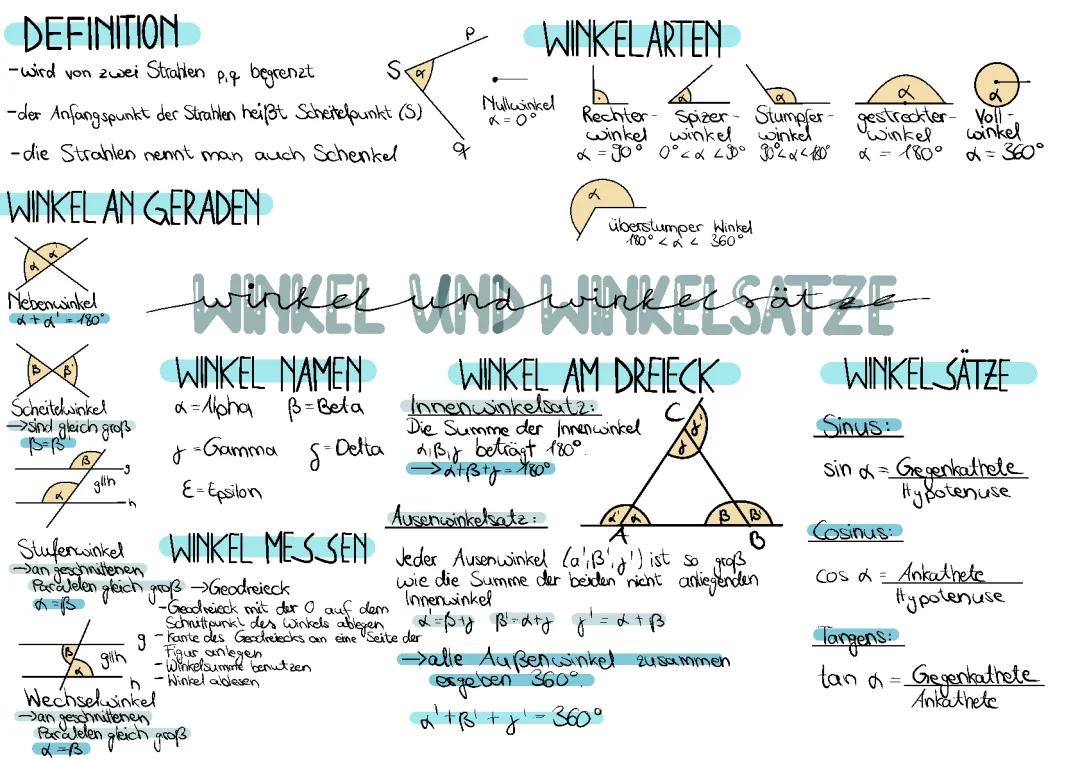 DEFINITION
-wird von zwei Strahlen p,q begrenzt
-der Anfangspunkt der Strahlen heißt Scheitelpunkt (S)
-die Strahlen nennt man auch Schenkel
S α p q
WINKELARTEN
Nullwinkel
α = 0°
Rechter-
winkel
α = 90°
Spizer-
winkel
0° < α < 90°
Stumpfer-
winkel
90° < α < 180°
gestreckter-
winkel
α = 180°
Voll-
winkel
α = 360°
überstumper Winkel
180° < α < 360°
WINKEL AN GERADEN
α α'
Nebenwinkel
α + α' = 180°
β β'
Scheitelwinkel
→sind gleich groß
β=β'
β g
g||h
α h
Stufenwinkel
→an geschnittenen
Paralelen gleich groß
α = β
g
β g||h
α h
Wechselwinkel
→an geschnittenen
Paralelen gleich groß
α = β
WINKEL UND WINKELSÄTZE
winkel und winkelsätze
WINKEL NAMEN
α = Alpha β = Beta
γ = Gamma δ = Delta
ε = Epsilon
WINKEL MESSEN
→Geodreieck
-Geodreieck mit der 0 auf dem
Schnittpunkt des Winkels ablegen
-Kante des Geodreiecks an eine Seite der
Figur anlegen
-Winkelsumme benutzen
-Winkel ablesen
WINKEL AM DREIECK
Innenwinkelsatz:
Die Summe der Innenwinkel
α,β,γ beträgt 180°.
→α+β+γ = 180°
C
γ γ'
α' α β β'
A B
Ausenwinkelsatz:
Jeder Ausenwinkel (α',β',γ') ist so groß
wie die Summe der beiden nicht anliegenden
Innenwinkel
α'=β+γ β'=α+γ γ' = α + β
→alle Außenwinkel zusammen
ergeben 360°.
α'+β' + γ' = 360°
WINKELSÄTZE
Sinus:
sin α = Gegenkathete
Hypotenuse
Cosinus:
cos α = Ankathete
Hypotenuse
Tangens:
tan α = Gegenkathete
Ankathete